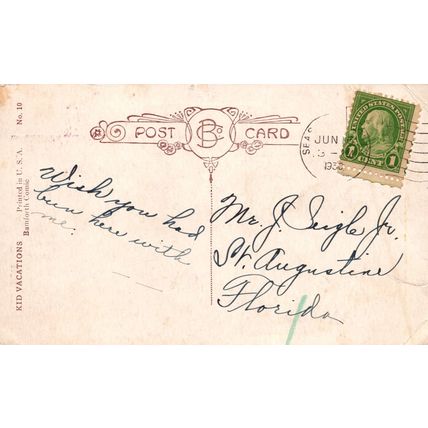 POST CARD
B Co
KID VACATIONS Printed in U. S. A. No. 10
Bamforth Comic
Wish you had
been here with
me.
Mr. J. Seigle Jr.
St. Augustine
Florida
JUN
193
UNITED STATES POSTAGE
1 CENT 1